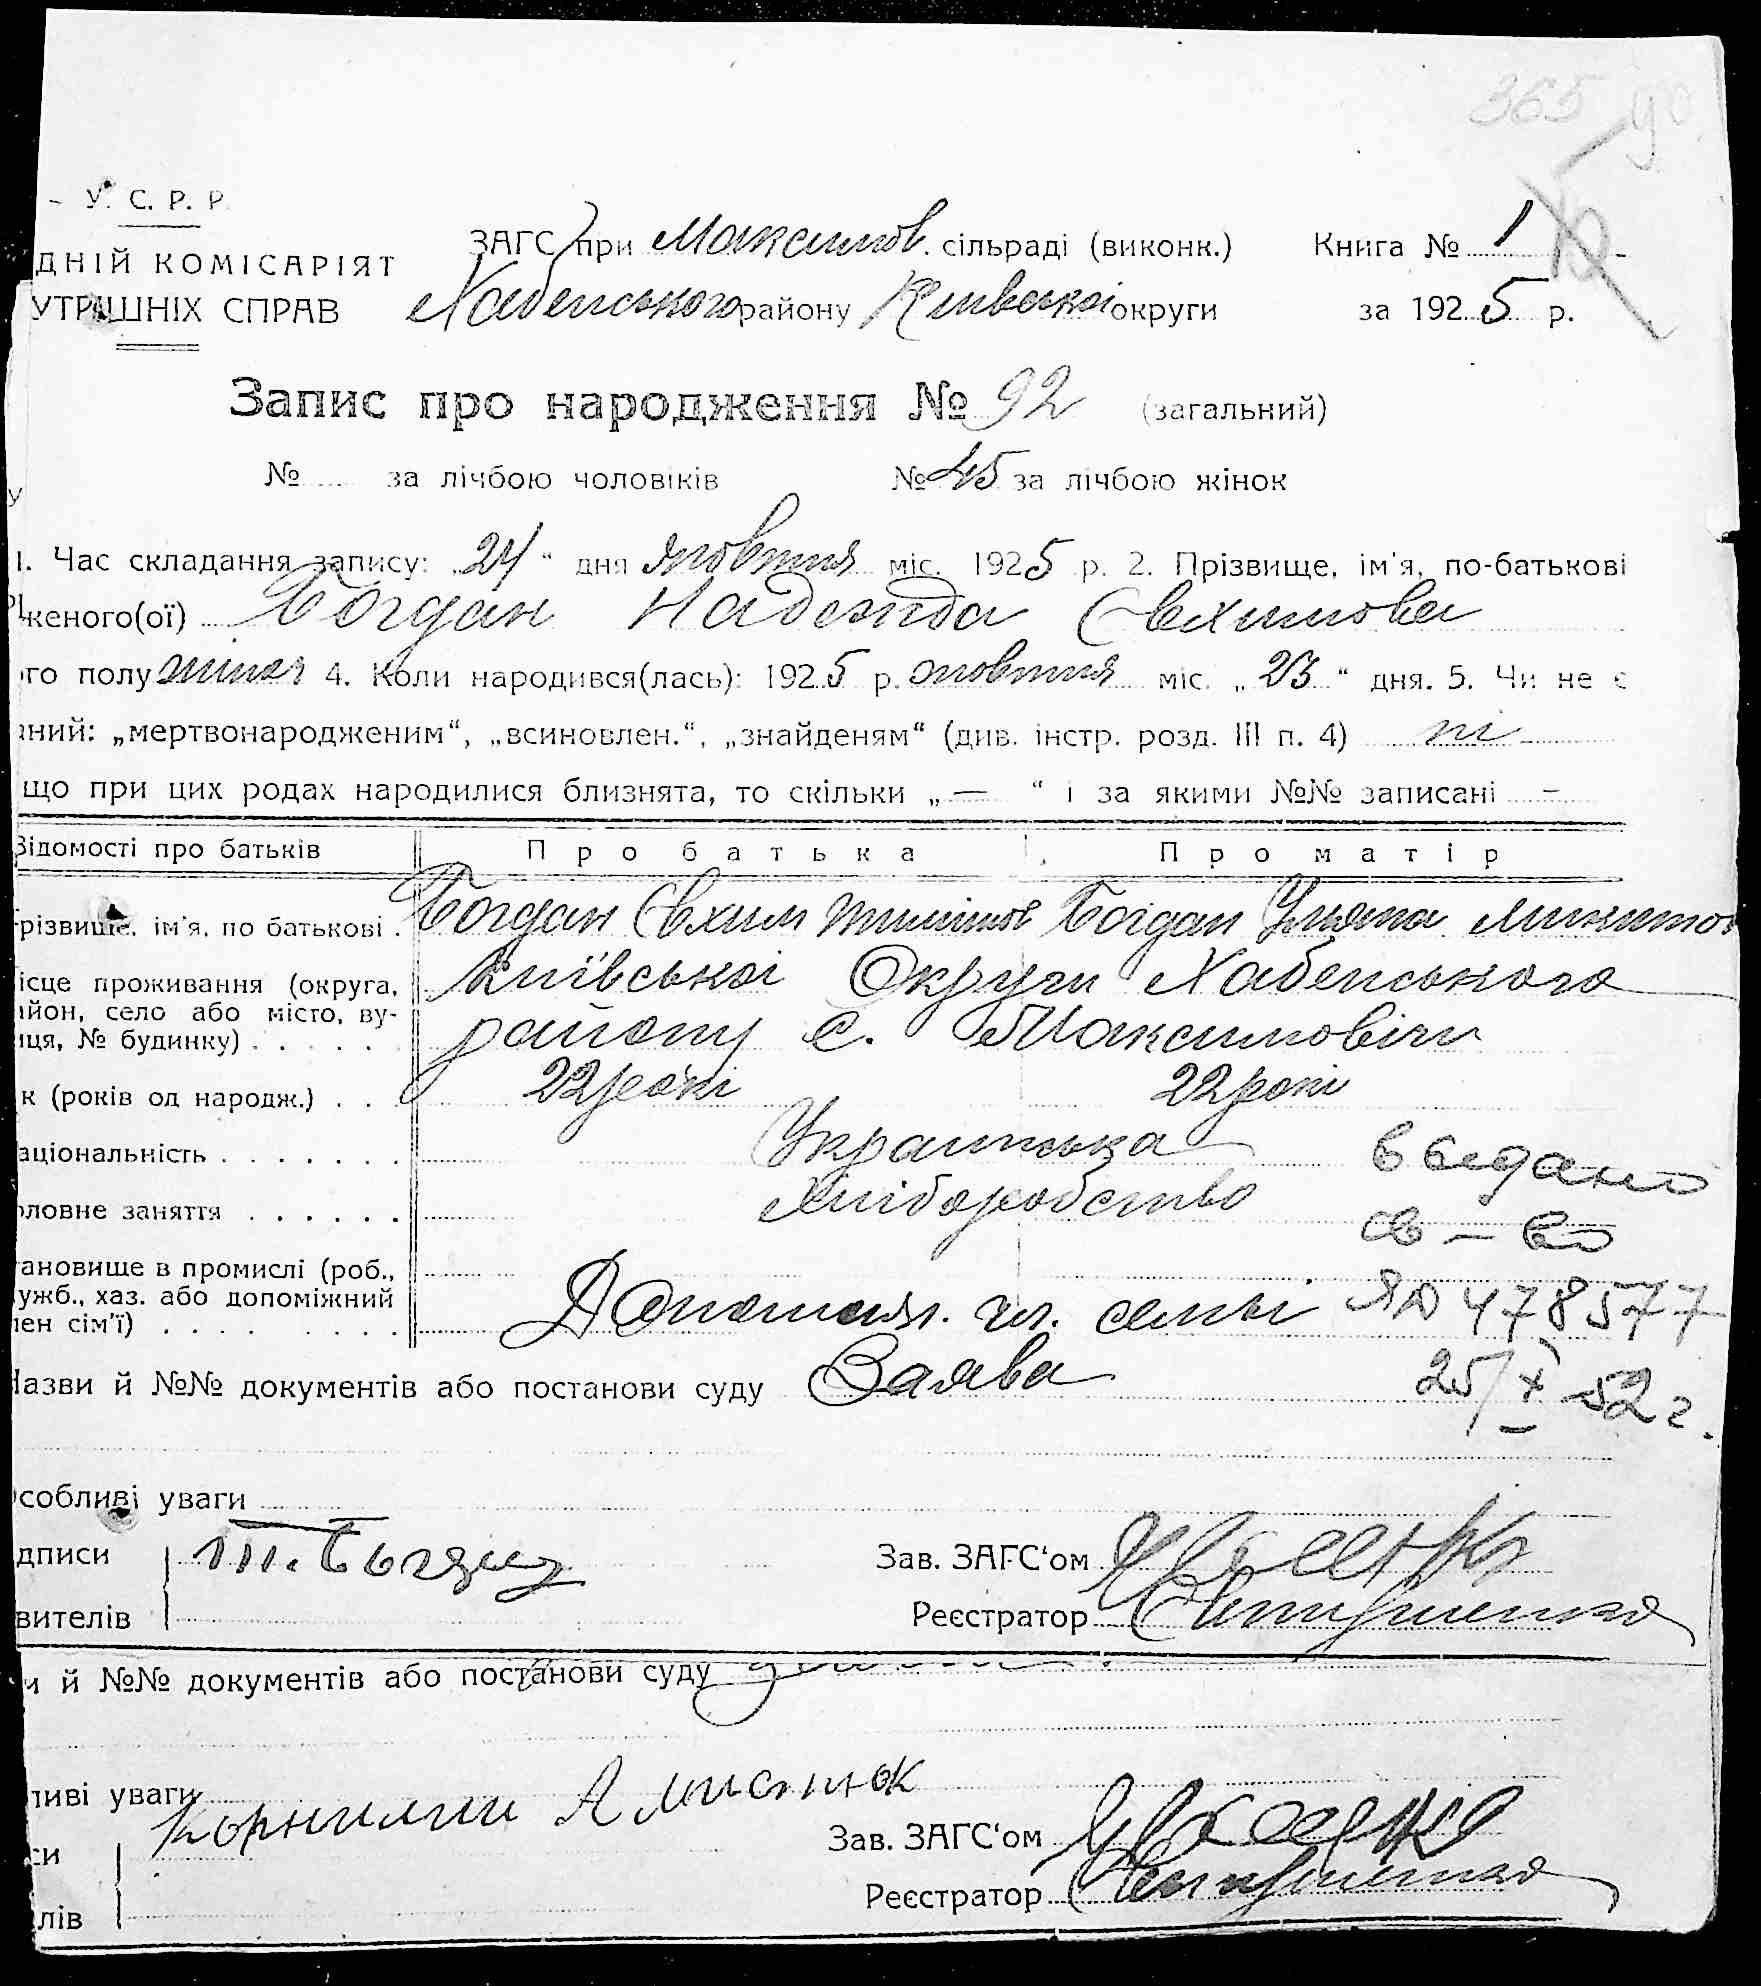 365
У. С. Р. Р.
ДНІЙ КОМІСАРІЯТ
УТРІШНІХ СПРАВ
ЗАГС при Максимов. сільраді (виконк.) Книга № 1
Хабенського району Київської округи за 1925 р.
Запис про народження № 92 (загальний)
№ за лічбою чоловіків № 45 за лічбою жінок
1. Час складання запису: 24 " дня жовтня міс. 1925 р. 2. Прізвище, ім'я, по-батькові
женого(ої) Богдан Надежда Євхимова
го полу жіноч 4. Коли народився(лась): 1925 р. жовтня міс. „ 23 " дня. 5. Чи не є
аний: „мертвонародженим“, „всиновлен.“, „знайденям“ (див. інстр. розд. III п. 4) ні
що при цих родах народилися близнята, то скільки „ — “ і за якими №№ записані —
Відомості про батьків Про батька Про матір
різвище, ім'я, по батькові . Богдан Євхим Богдан Уляна Микитов
ісце проживання (округа, Київської Округи Хабенського
айон, село або місто, ву-
иця, № будинку) . . . . . . району с. Максимовічи
к (років од народж.) . . 22 рокі 22 рокі
аціональність . . . . . . . Українська
оловне заняття . . . . . . Хліборобство
выдано
св-во
тановище в промислі (роб.,
ужб., хаз. або допоміжний
лен сім'ї) . . . . . . . . Допомжн. чл. семьі
ЯО 478577
Назви й №№ документів або постанови суду Заява
25/X-52 г.
собливі уваги
дписи Т. Богдан Зав. ЗАГС'ом
вителів Реєстратор
и й №№ документів або постанови суду
ливі уваги
Корнилий
си Зав. ЗАГС'ом
лів Реєстратор